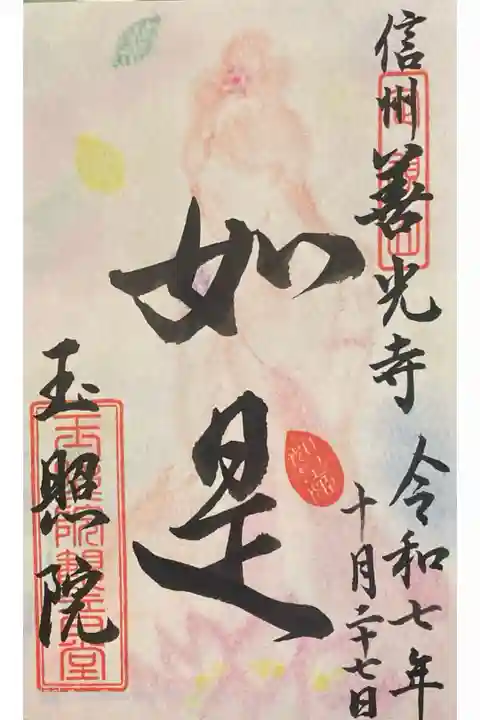 信州善光寺
令和七年
十月二十七日
如是
玉照院